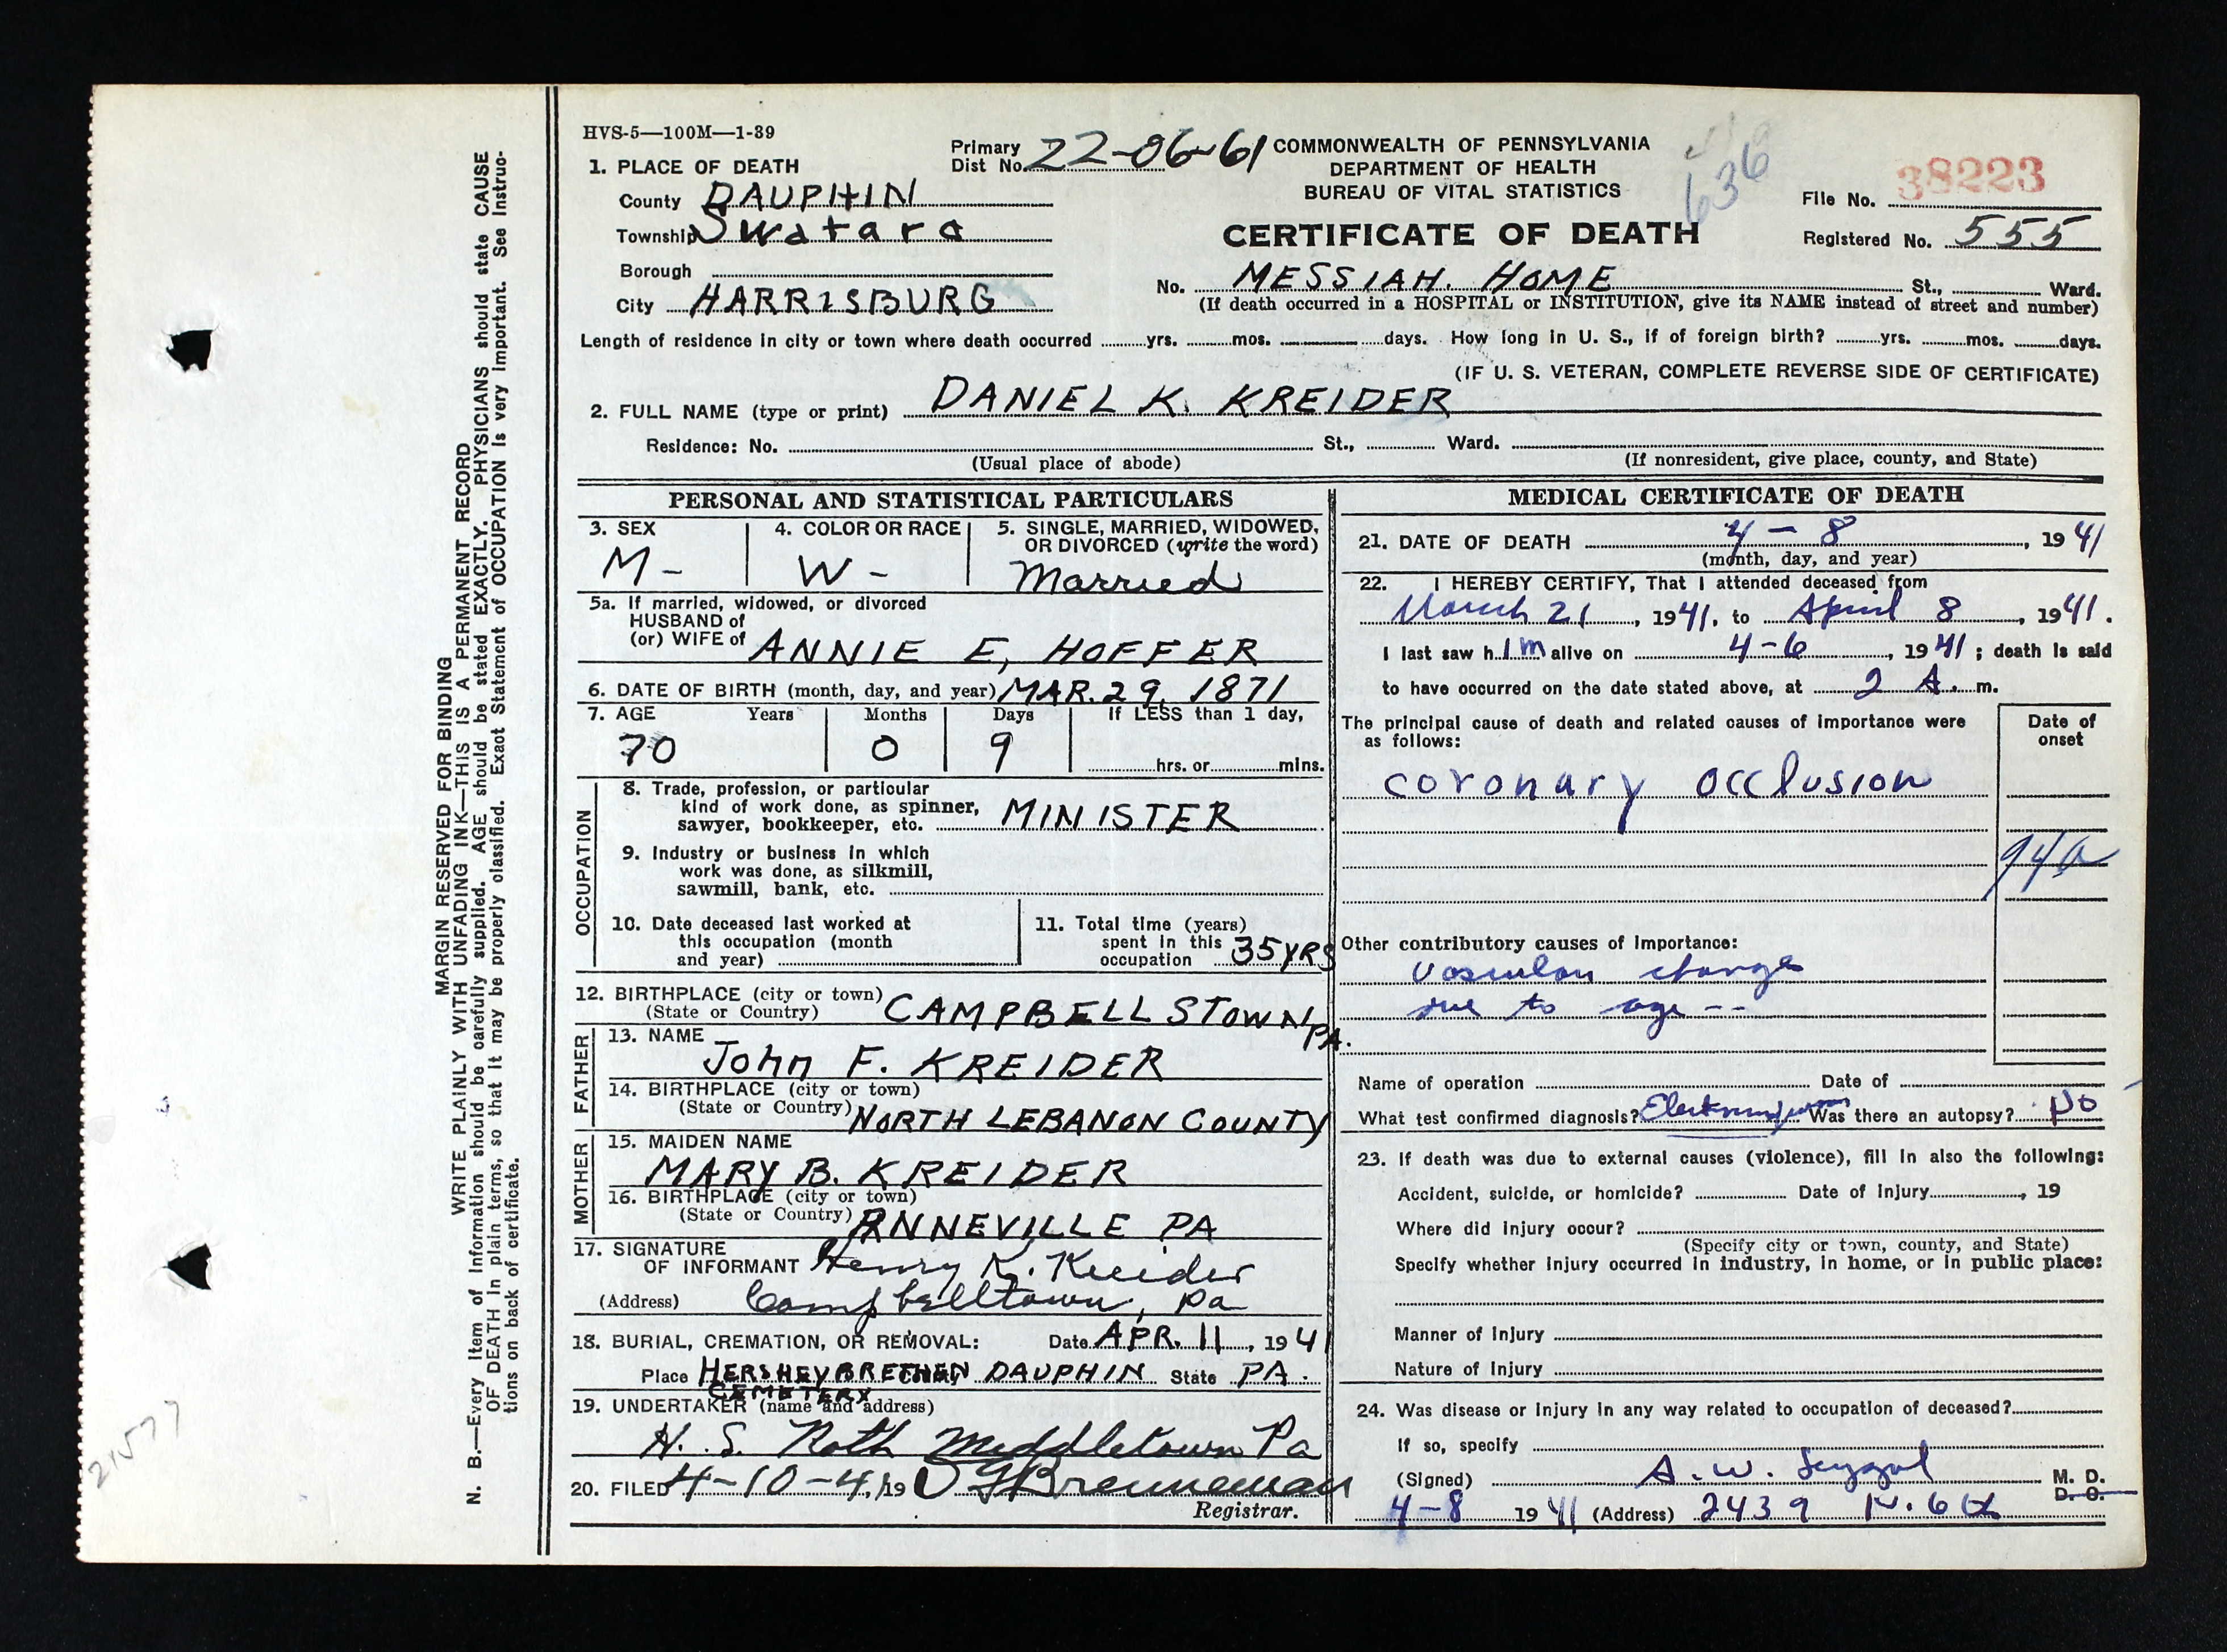 HVS-5—100M—1-39
Primary Dist No. 22-06-61
COMMONWEALTH OF PENNSYLVANIA
DEPARTMENT OF HEALTH
BUREAU OF VITAL STATISTICS
CERTIFICATE OF DEATH
636
File No. 38223
Registered No. 555
1. PLACE OF DEATH
County DAUPHIN
Township Swatara
Borough
City HARRISBURG
No. MESSIAH. HOME St., Ward.
(If death occurred in a HOSPITAL or INSTITUTION, give its NAME instead of street and number)
Length of residence in city or town where death occurred yrs. mos. days. How long in U. S., if of foreign birth? yrs. mos. days.
(IF U. S. VETERAN, COMPLETE REVERSE SIDE OF CERTIFICATE)
2. FULL NAME (type or print) DANIEL K. KREIDER
Residence: No. St., Ward.
(Usual place of abode) (If nonresident, give place, county, and State)
PERSONAL AND STATISTICAL PARTICULARS
3. SEX
M-
4. COLOR OR RACE
W-
5. SINGLE, MARRIED, WIDOWED,
OR DIVORCED (write the word)
Married
5a. If married, widowed, or divorced
HUSBAND of
(or) WIFE of ANNIE E, HOFFER
6. DATE OF BIRTH (month, day, and year) MAR. 29, 1871
7. AGE Years Months Days If LESS than 1 day,
70 0 9 hrs. or mins.
OCCUPATION
8. Trade, profession, or particular
kind of work done, as spinner,
sawyer, bookkeeper, etc. MINISTER
9. Industry or business in which
work was done, as silkmill,
sawmill, bank, etc.
10. Date deceased last worked at
this occupation (month
and year)
11. Total time (years)
spent in this
occupation 35 YRS
12. BIRTHPLACE (city or town)
(State or Country) CAMPBELLSTOWN PA.
FATHER
13. NAME
John F. KREIDER
14. BIRTHPLACE (city or town)
(State or Country) NORTH LEBANON COUNTY
MOTHER
15. MAIDEN NAME
MARY B. KREIDER
16. BIRTHPLACE (city or town)
(State or Country) ANNEVILLE PA
17. SIGNATURE
OF INFORMANT Henry K. Kreider
(Address) Campbelltown, Pa
18. BURIAL, CREMATION, OR REMOVAL: Date APR. 11, 1941
Place HERSHEY BRETHEN DAUPHIN State PA.
CEMETERY
19. UNDERTAKER (name and address)
H. S. Roth Middletown Pa
20. FILED 4-10-41, 19 Brenneman
Registrar.
MEDICAL CERTIFICATE OF DEATH
21. DATE OF DEATH 4 - 8, 1941
(month, day, and year)
22. I HEREBY CERTIFY, That I attended deceased from
March 21, 1941, to April 8, 1941.
I last saw him alive on 4-6, 1941; death is said
to have occurred on the date stated above, at 2 A. m.
The principal cause of death and related causes of importance were
as follows:
Date of
onset
coronary occlusion
94a
Other contributory causes of importance:
vascular change
due to age --
Name of operation Date of
What test confirmed diagnosis? Was there an autopsy? No
23. If death was due to external causes (violence), fill in also the following:
Accident, suicide, or homicide? Date of injury, 19
Where did injury occur?
(Specify city or town, county, and State)
Specify whether injury occurred in industry, in home, or in public place:
Manner of injury
Nature of injury
24. Was disease or injury in any way related to occupation of deceased?
If so, specify
(Signed) A. W. M. D.
D. O.
4-8 1941 (Address) 2439 N. 6th
MARGIN RESERVED FOR BINDING
WRITE PLAINLY WITH UNFADING INK—THIS IS A PERMANENT RECORD
N. B.—Every item of information should be carefully supplied. AGE should be stated EXACTLY. PHYSICIANS should state CAUSE
OF DEATH in plain terms, so that it may be properly classified. Exact Statement of OCCUPATION is very important. See Instruc-
tions on back of certificate.
21577